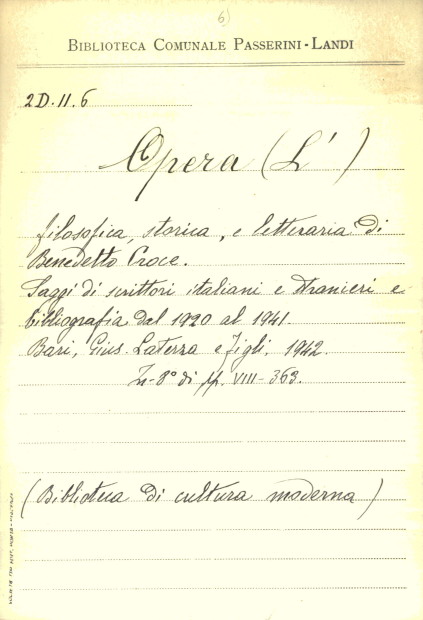 6)
BIBLIOTECA COMUNALE PASSERINI-LANDI
2D.11.6
Opera (L')
filosofica, storica, e letteraria di
Benedetto Croce.
Saggi di scrittori italiani e stranieri e
bibliografia dal 1920 al 1941.
Bari, Gius. Laterza e figli, 1942.
In-8° di pp. VIII-363.
(Biblioteca di cultura moderna)